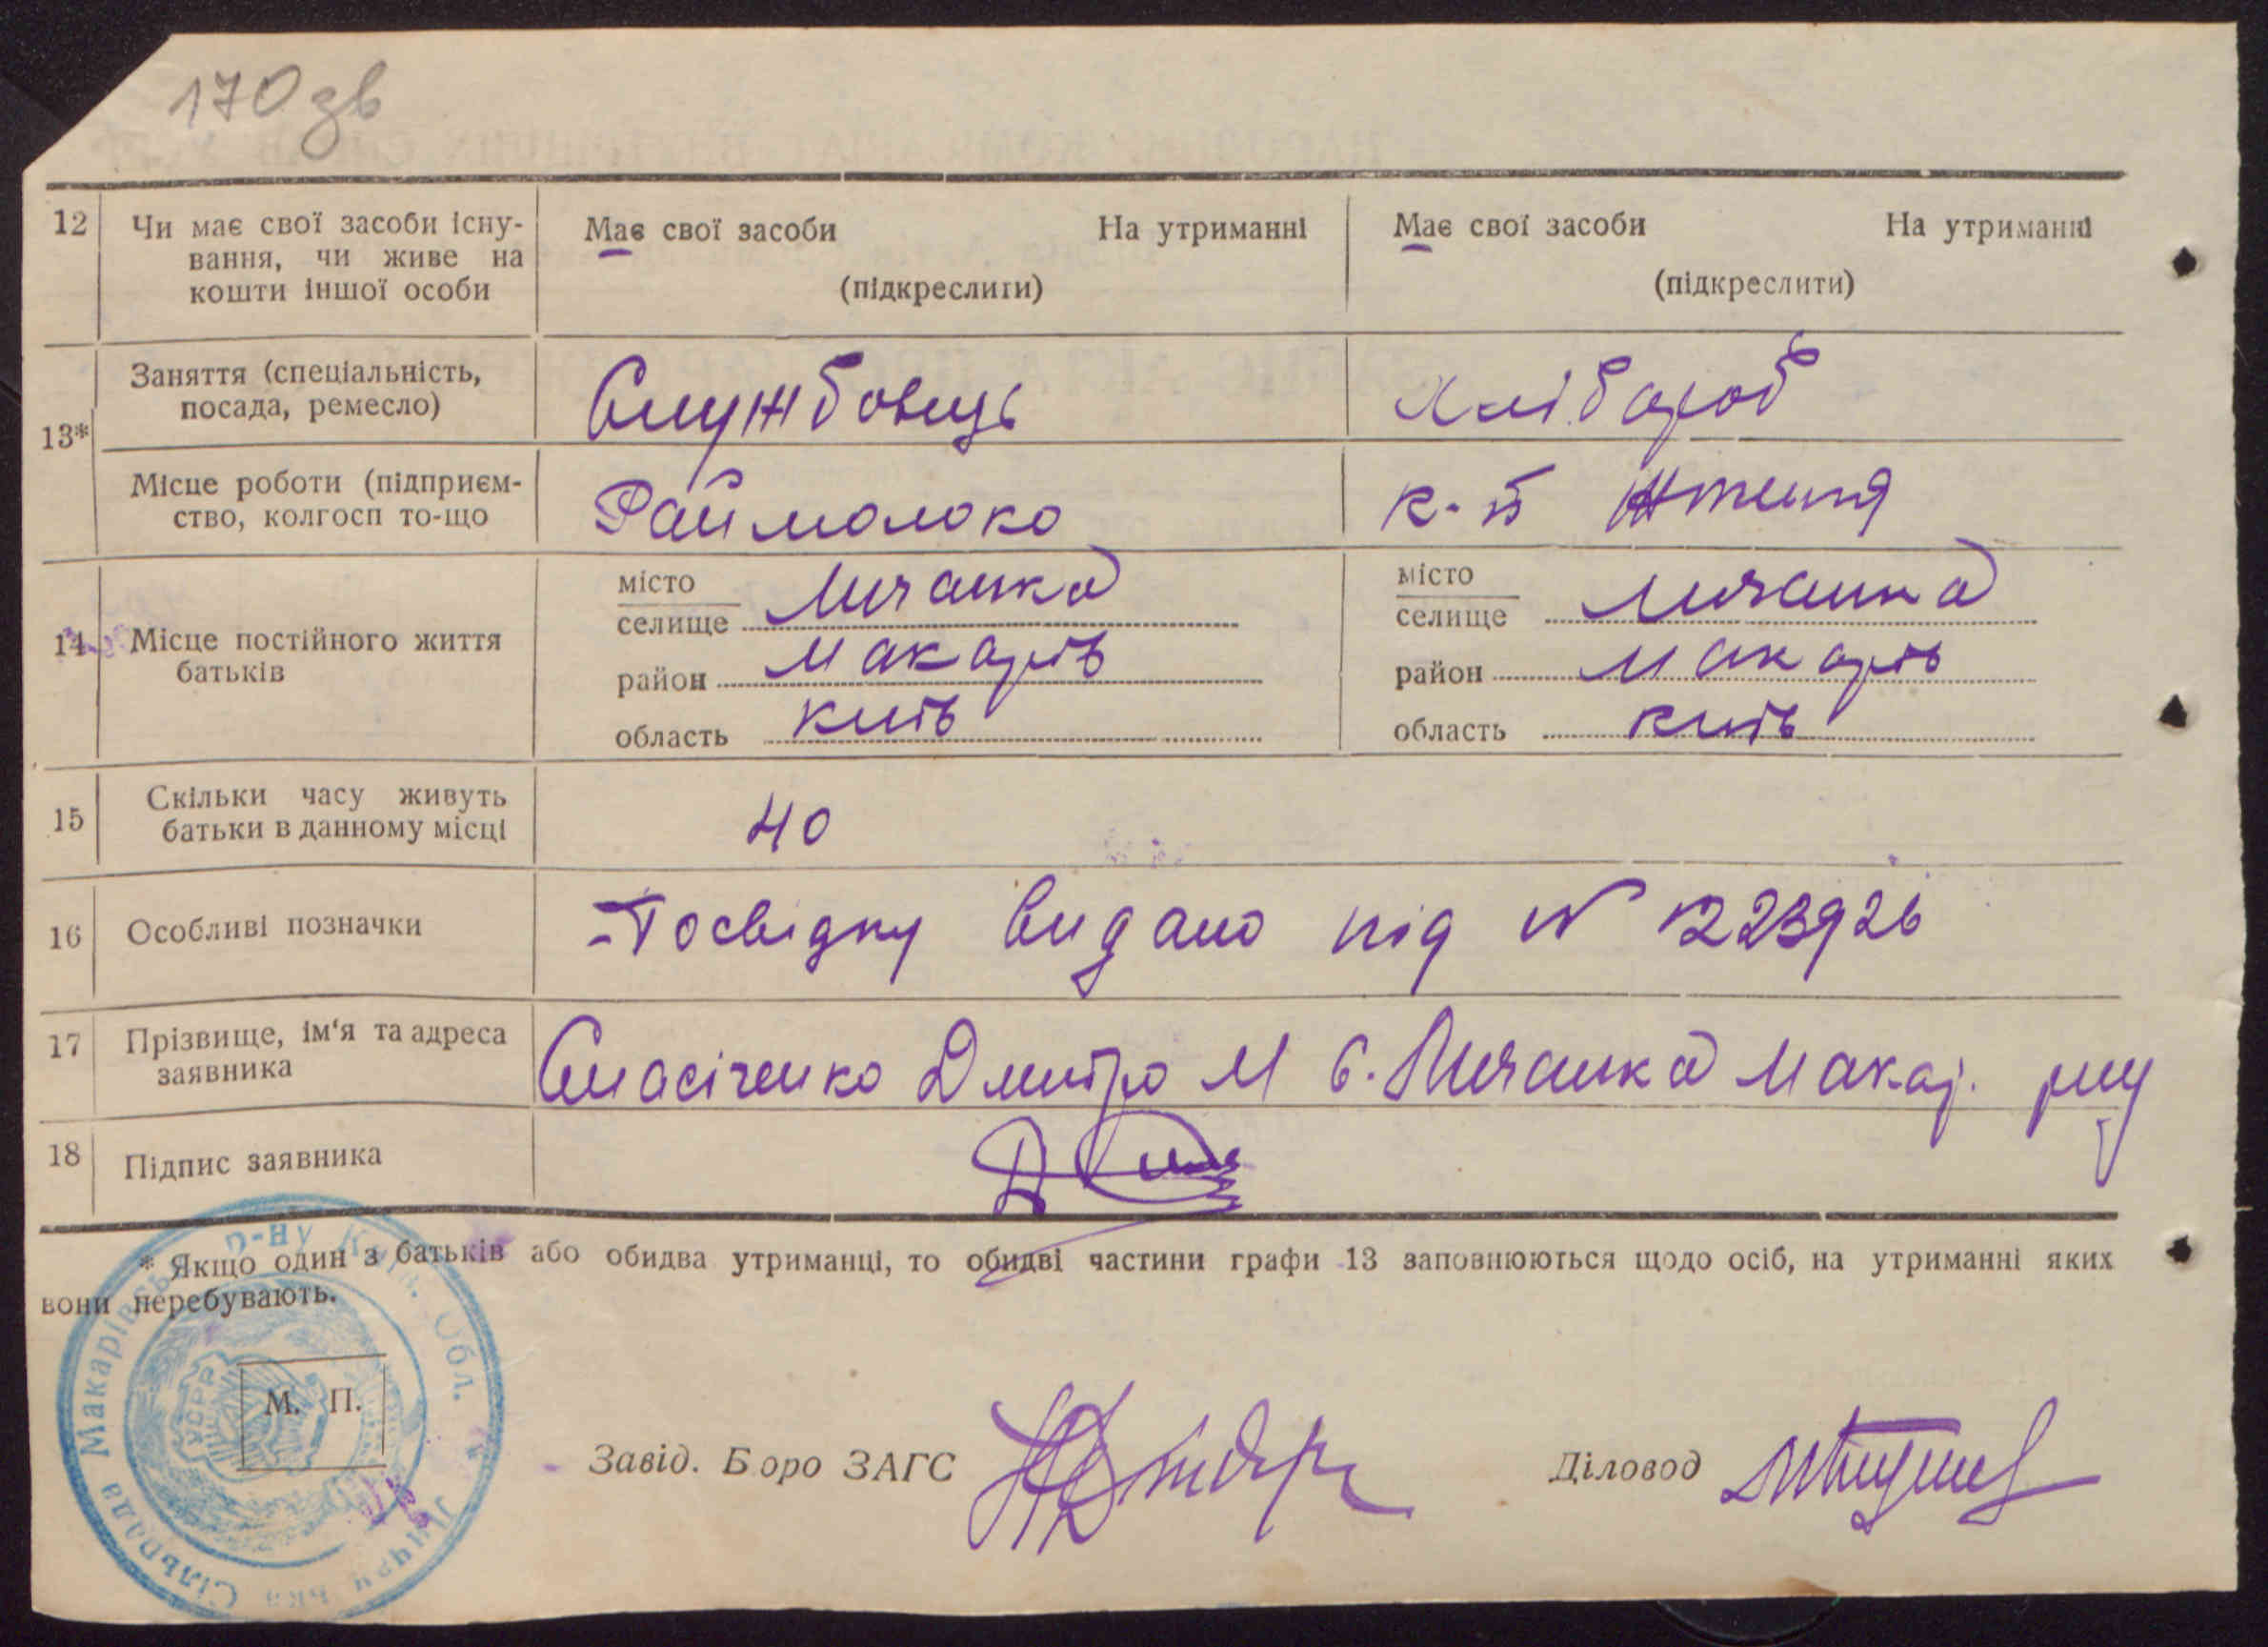 170 зв
12 Чи має свої засоби існу- Має свої засоби На утриманні Має свої засоби На утриманні
вання, чи живе на
кошти іншої особи (підкреслити) (підкреслити)
13* Заняття (спеціальність, Службовець Хлібороб
посада, ремесло)
Місце роботи (підприєм- Раймолоко к-т
ство, колгосп то-що
14 Місце постійного життя місто Личанка місто Личанка
батьків селище селище
район Макарів район Макарів
область Київ область Київ
15 Скільки часу живуть 40
батьки в данному місці
16 Особливі позначки Посвідку видано під № 1223926
17 Прізвище, ім'я та адреса Спасіченко Дмитро М с. Личанка Макар. р-ну
заявника
18 Підпис заявника
* Якщо один з батьків або обидва утриманці, то обидві частини графи 13 заповнюються щодо осіб, на утриманні яких
вони перебувають.
М. П.
Макарівськ. р-ну Київ. Обл.
Сільрада
УСРР
Завід. Бюро ЗАГС Діловод